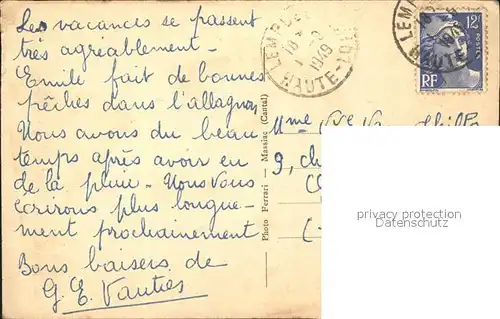 Les vacances se passent
très agréablement -
Emile fait de bonnes
pêches dans l'allagnon
Nous avons du beau
temps après avoir eu
de la pluie - Nous vous
écrirons plus longue-
ment prochainement
Bons baisers de
G. E. Vautres
Photo Ferrari - Massiac (Cantal)
1949
HAUTE-
12F
POSTES
RF
HAUTE
Mme
9, ch
privacy protection
www.oldthing.de